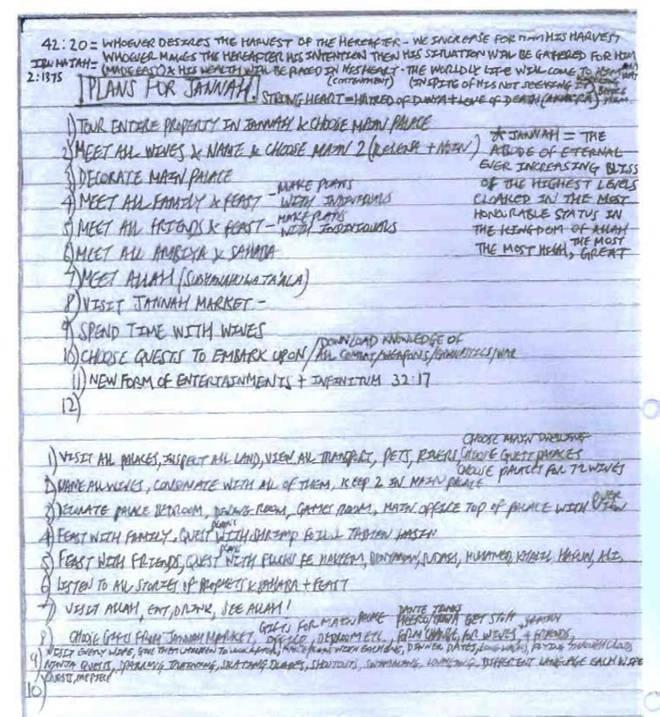 42:20 = WHOEVER DESIRES THE HARVEST OF THE HEREAFTER - WE INCREASE FOR HIM HIS HARVEST
IBN MAJAH= WHOEVER MAKES THE HEREAFTER HIS INTENTION THEN HIS SITUATION WILL BE GATHERED FOR HIM
2:1375 (MADE EASY) & HIS WEALTH WILL BE PLACED IN HIS HEART - THE WORLDLY LIFE WILL COME TO HIM
(CONTENTMENT) (INSPITE OF HIS NOT SEEKING IT)
PLANS FOR JANNAH! STRONG HEART = HATRED OF DUNYA + LOVE OF DEATH
1) TOUR ENTIRE PROPERTY IN JANNAH & CHOOSE MAIN PALACE
2) MEET ALL WIVES & NAME & CHOOSE MAIN 2
3) DECORATE MAIN PALACE
4) MEET ALL FAMILY & FEAST - MAKE PLANS WITH INDIVIDUALS
5) MEET ALL FRIENDS & FEAST - MAKE PLANS WITH INDIVIDUALS
6) MEET ALL AMBIYA & SAHABA
7) MEET ALLAH (SUBHANAHU WA TA'ALA)
8) VISIT JANNAH MARKET -
9) SPEND TIME WITH WIVES
10) CHOOSE QUESTS TO EMBARK UPON / DOWNLOAD KNOWLEDGE OF
ALL COMBAT/WEAPONS/GYMNASTICS/WAR
11) NEW FORM OF ENTERTAINMENTS + INFINITUM 32:17
12)
* JANNAH = THE
ABODE OF ETERNAL
EVER INCREASING BLISS
OF THE HIGHEST LEVELS
CLOAKED IN THE MOST
HONOURABLE STATUS IN
THE KINGDOM OF ALLAH
THE MOST HIGH, THE MOST GREAT
CHOOSE MAIN DWELLING
1) VISIT ALL PALACES, INSPECT ALL LAND, VIEW ALL TRANSPORT, PETS, RIVERS, CHOOSE GUEST PALACES
CHOOSE PALACES FOR 72 WIVES
2) NAME ALL WIVES, CONSUMATE WITH ALL OF THEM, KEEP 2 IN MAIN PALACE
3) DECORATE PALACE BEDROOM, DINING ROOM, GAMES ROOM, MAIN OFFICE TOP OF PALACE WITH OVER VIEW
4) FEAST WITH FAMILY, QUEST WITH
5) FEAST WITH FRIENDS, QUEST WITH
6) LISTEN TO ALL STORIES OF PROPHETS & SAHABA + FEAST
7) VISIT ALLAH, EAT, DRINK, SEE ALLAH!
8) CHOOSE GIFTS FROM JANNAH MARKET, GIFTS FOR MAIN PALACE, OFFICE, BEDROOM ETC, FORM CHANGE, FOR WIVES, + FRIENDS,
9) VISIT EVERY WIFE, GIVE THEM CHILDREN TO LOOK AFTER, MAKE PLANS WITH EACH ONE, DINNER DATES, LONG WALKS, FLYING THROUGH CLOUDS
NINJA QUESTS, TRAINING, SKATING, SHOOTOUTS, SWIMMING, DIFFERENT LANGUAGE EACH WIFE
10)